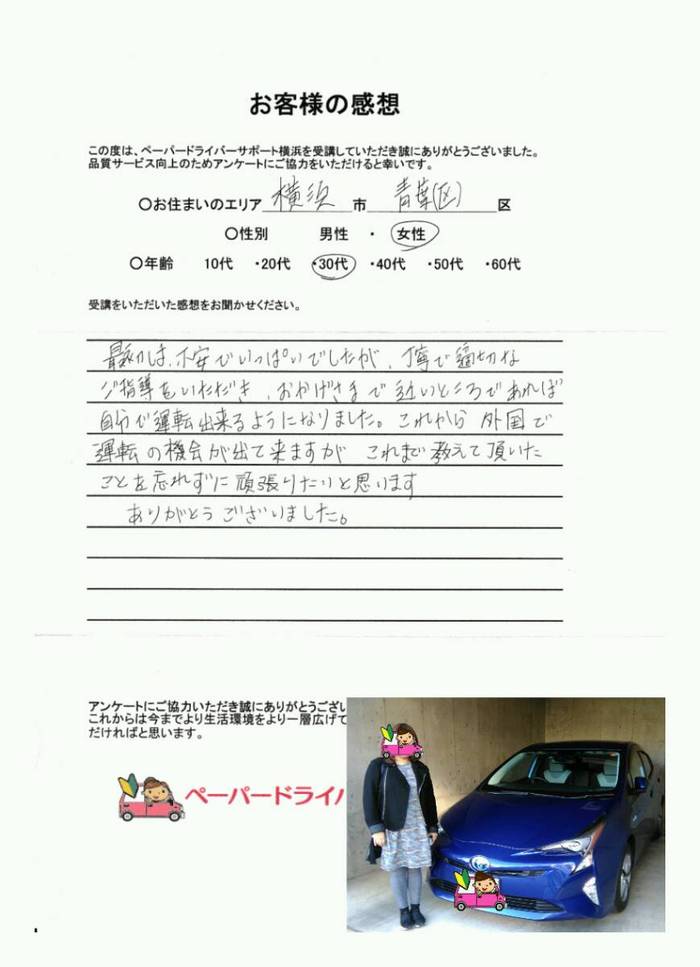 お客様の感想
この度は、ペーパードライバーサポート横浜を受講していただき誠にありがとうございました。
品質サービス向上のためアンケートにご協力をいただけると幸いです。
〇お住まいのエリア 横浜 市 青葉(区) 区
〇性別 男性 ・ 女性
〇年齢 10代 ・20代 ・30代 ・40代 ・50代 ・60代
受講をいただいた感想をお聞かせください。
最初は、不安でいっぱいでしたが、丁寧で適切な
ご指導をいただき、おかげさまで近いところであれば
自分で運転出来るようになりました。これから 外国で
運転の機会が出て来ますが これまで教えて頂いた
ことを忘れずに頑張りたいと思います
ありがとうございました。
アンケートにご協力いただき誠にありがとうござい
これからは今までより生活環境をより一層広げて
だければと思います。
ペーパードライバ